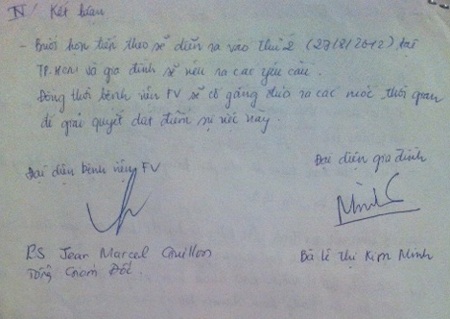 IV/ Kết luận
- Buổi họp tiếp theo sẽ diễn ra vào thứ 2 (27/8/2012) tại
TP.HCM và gia đình sẽ nêu ra các yêu cầu.
Đồng thời bệnh viện FV sẽ cố gắng đưa ra các mốc thời gian
để giải quyết dứt điểm sự việc này.
Đại diện bệnh viện FV
Đại diện gia đình
Minh
BS Jean Marcel Guillon
Bà Lê Thị Kim Minh
Tổng Giám Đốc.